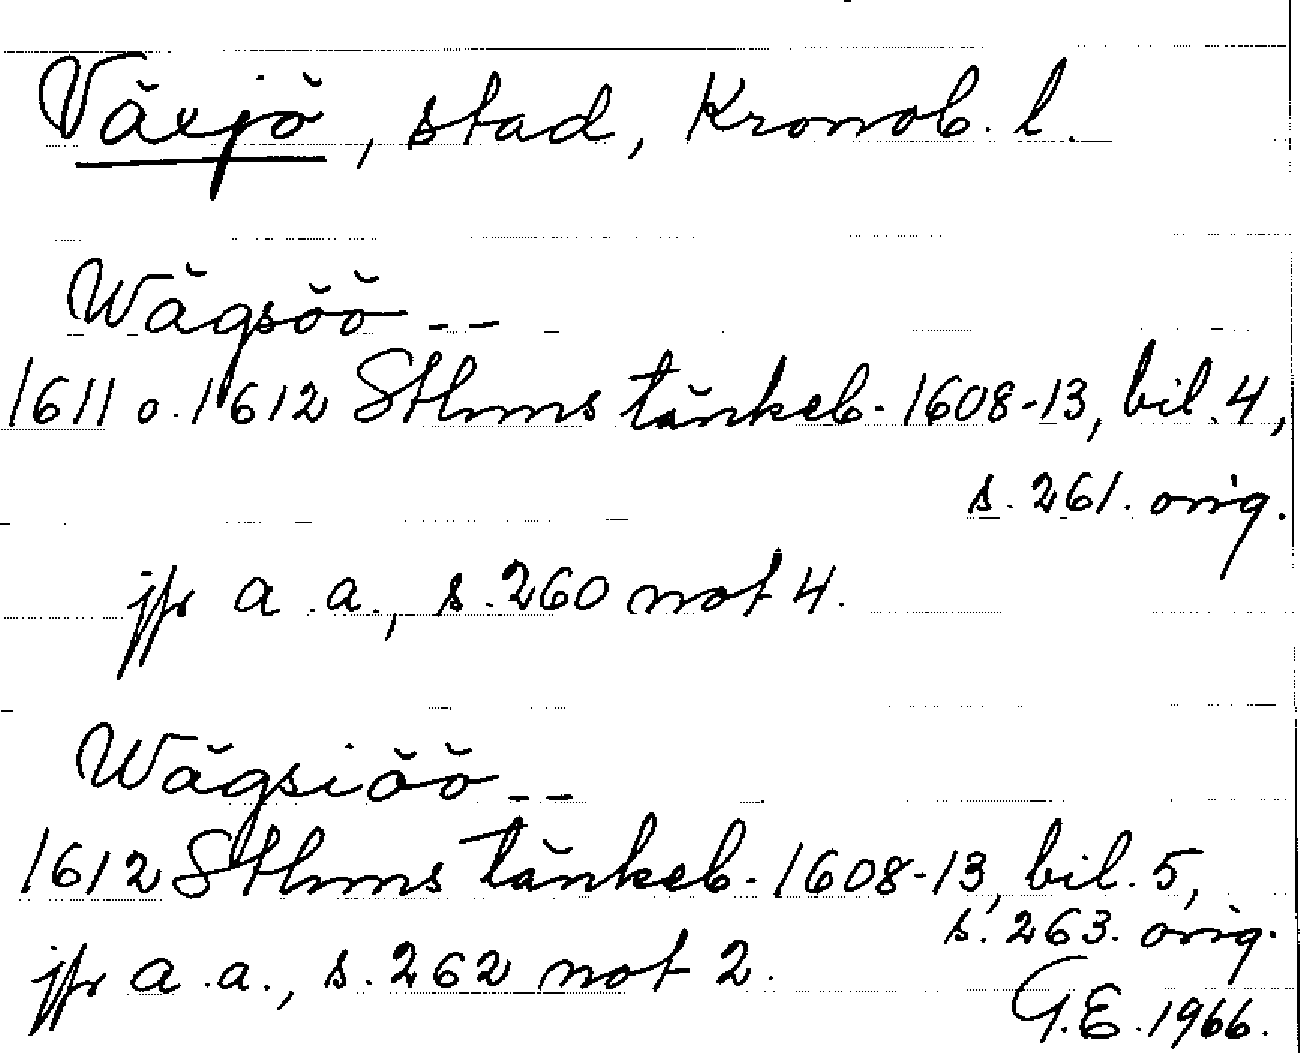 Växjö, stad, Kronob. l.
Wägsöö--
1611 o. 1612 Sthms tänkeb. 1608-13, bil. 4,
s. 261. orig.
jfr a.a., s. 260 not 4.
Wägsiöö--
1612 Sthms tänkeb. 1608-13, bil. 5,
s. 263. orig.
jfr a.a., s. 262 not 2.
G.E. 1966.